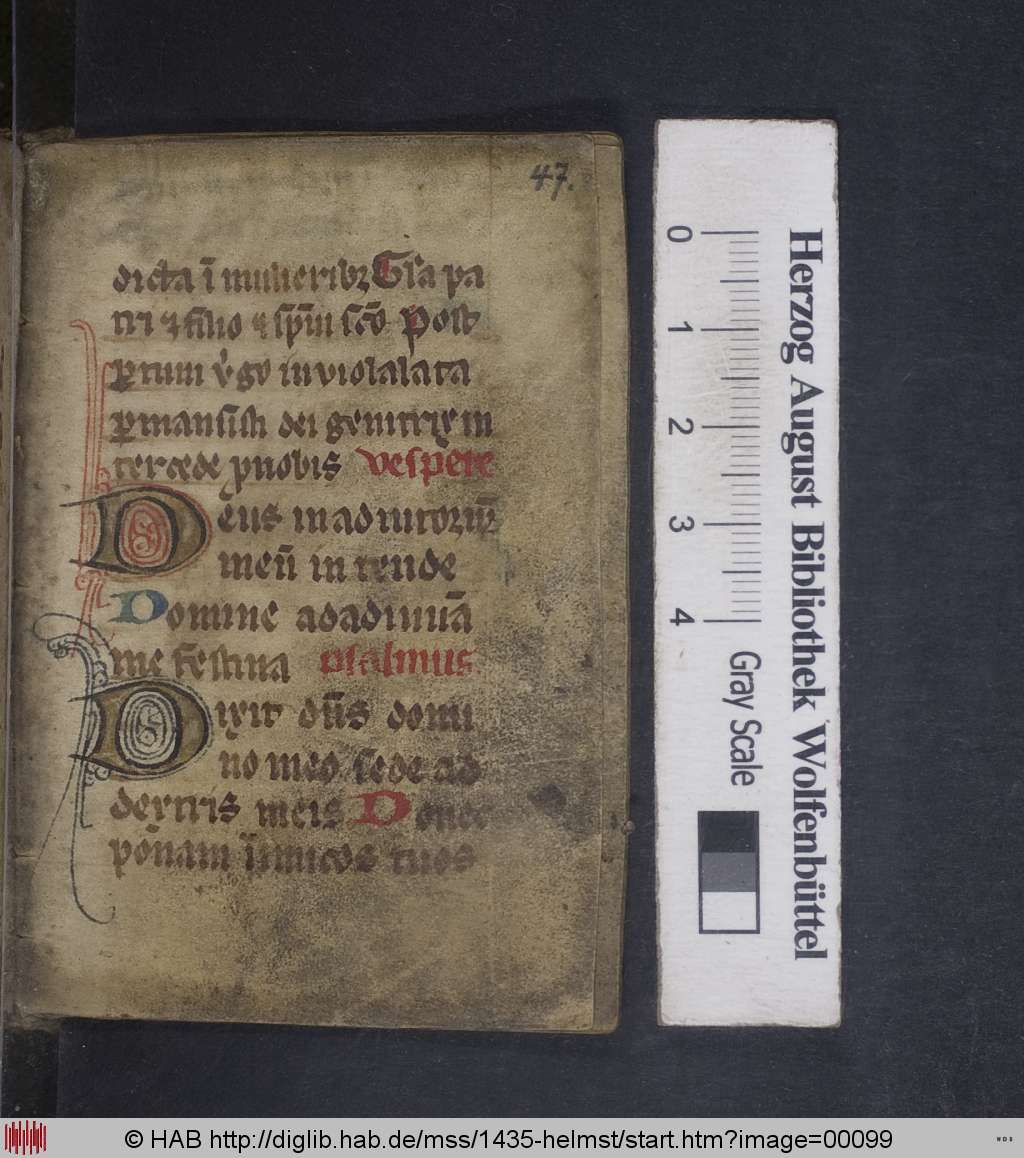 47.
dicta ī mulieribꝫ Gl̄a pa
tri ⁊ filio ⁊ sp̄m sc̄o Post
ꝑtum v̓go inviolalata
ꝑmansisti dei genitrix in
tercede pnobis vespere
Deus in adiutoriū
meū in tende
Domine adadiuuā
me festina psalmus
Dixit dn̄s domi
no meo sede ad
dextris meis Donec
ponam inimicos tuos
Herzog August Bibliothek Wolfenbüttel
0 1 2 3 4 Gray Scale
© HAB http://diglib.hab.de/mss/1435-helmst/start.htm?image=00099